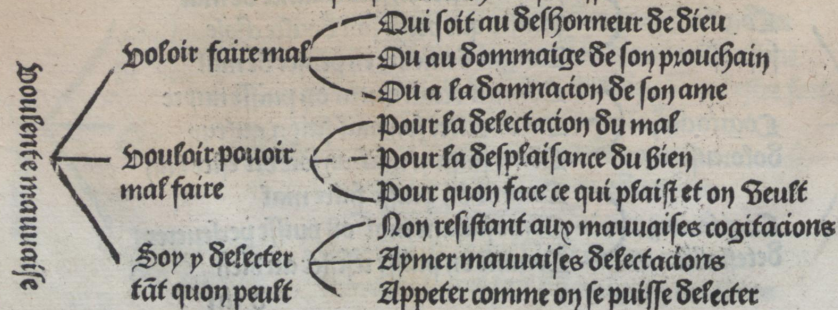 voulente mauuaise
voloir faire mal
Qui soit au deshonneur de dieu
Ou au dommaige de son prouchain
Ou a la damnacion de son ame
vouloir pouoir
mal faire
Pour la delectacion du mal
Pour la desplaisance du bien
Pour quon face ce qui plaist et on veult
Soy y delecter
tãt quon peult
Non resistant aux mauuaises cogitacions
Aymer mauuaises delectacions
Appeter comme on se puisse delecter